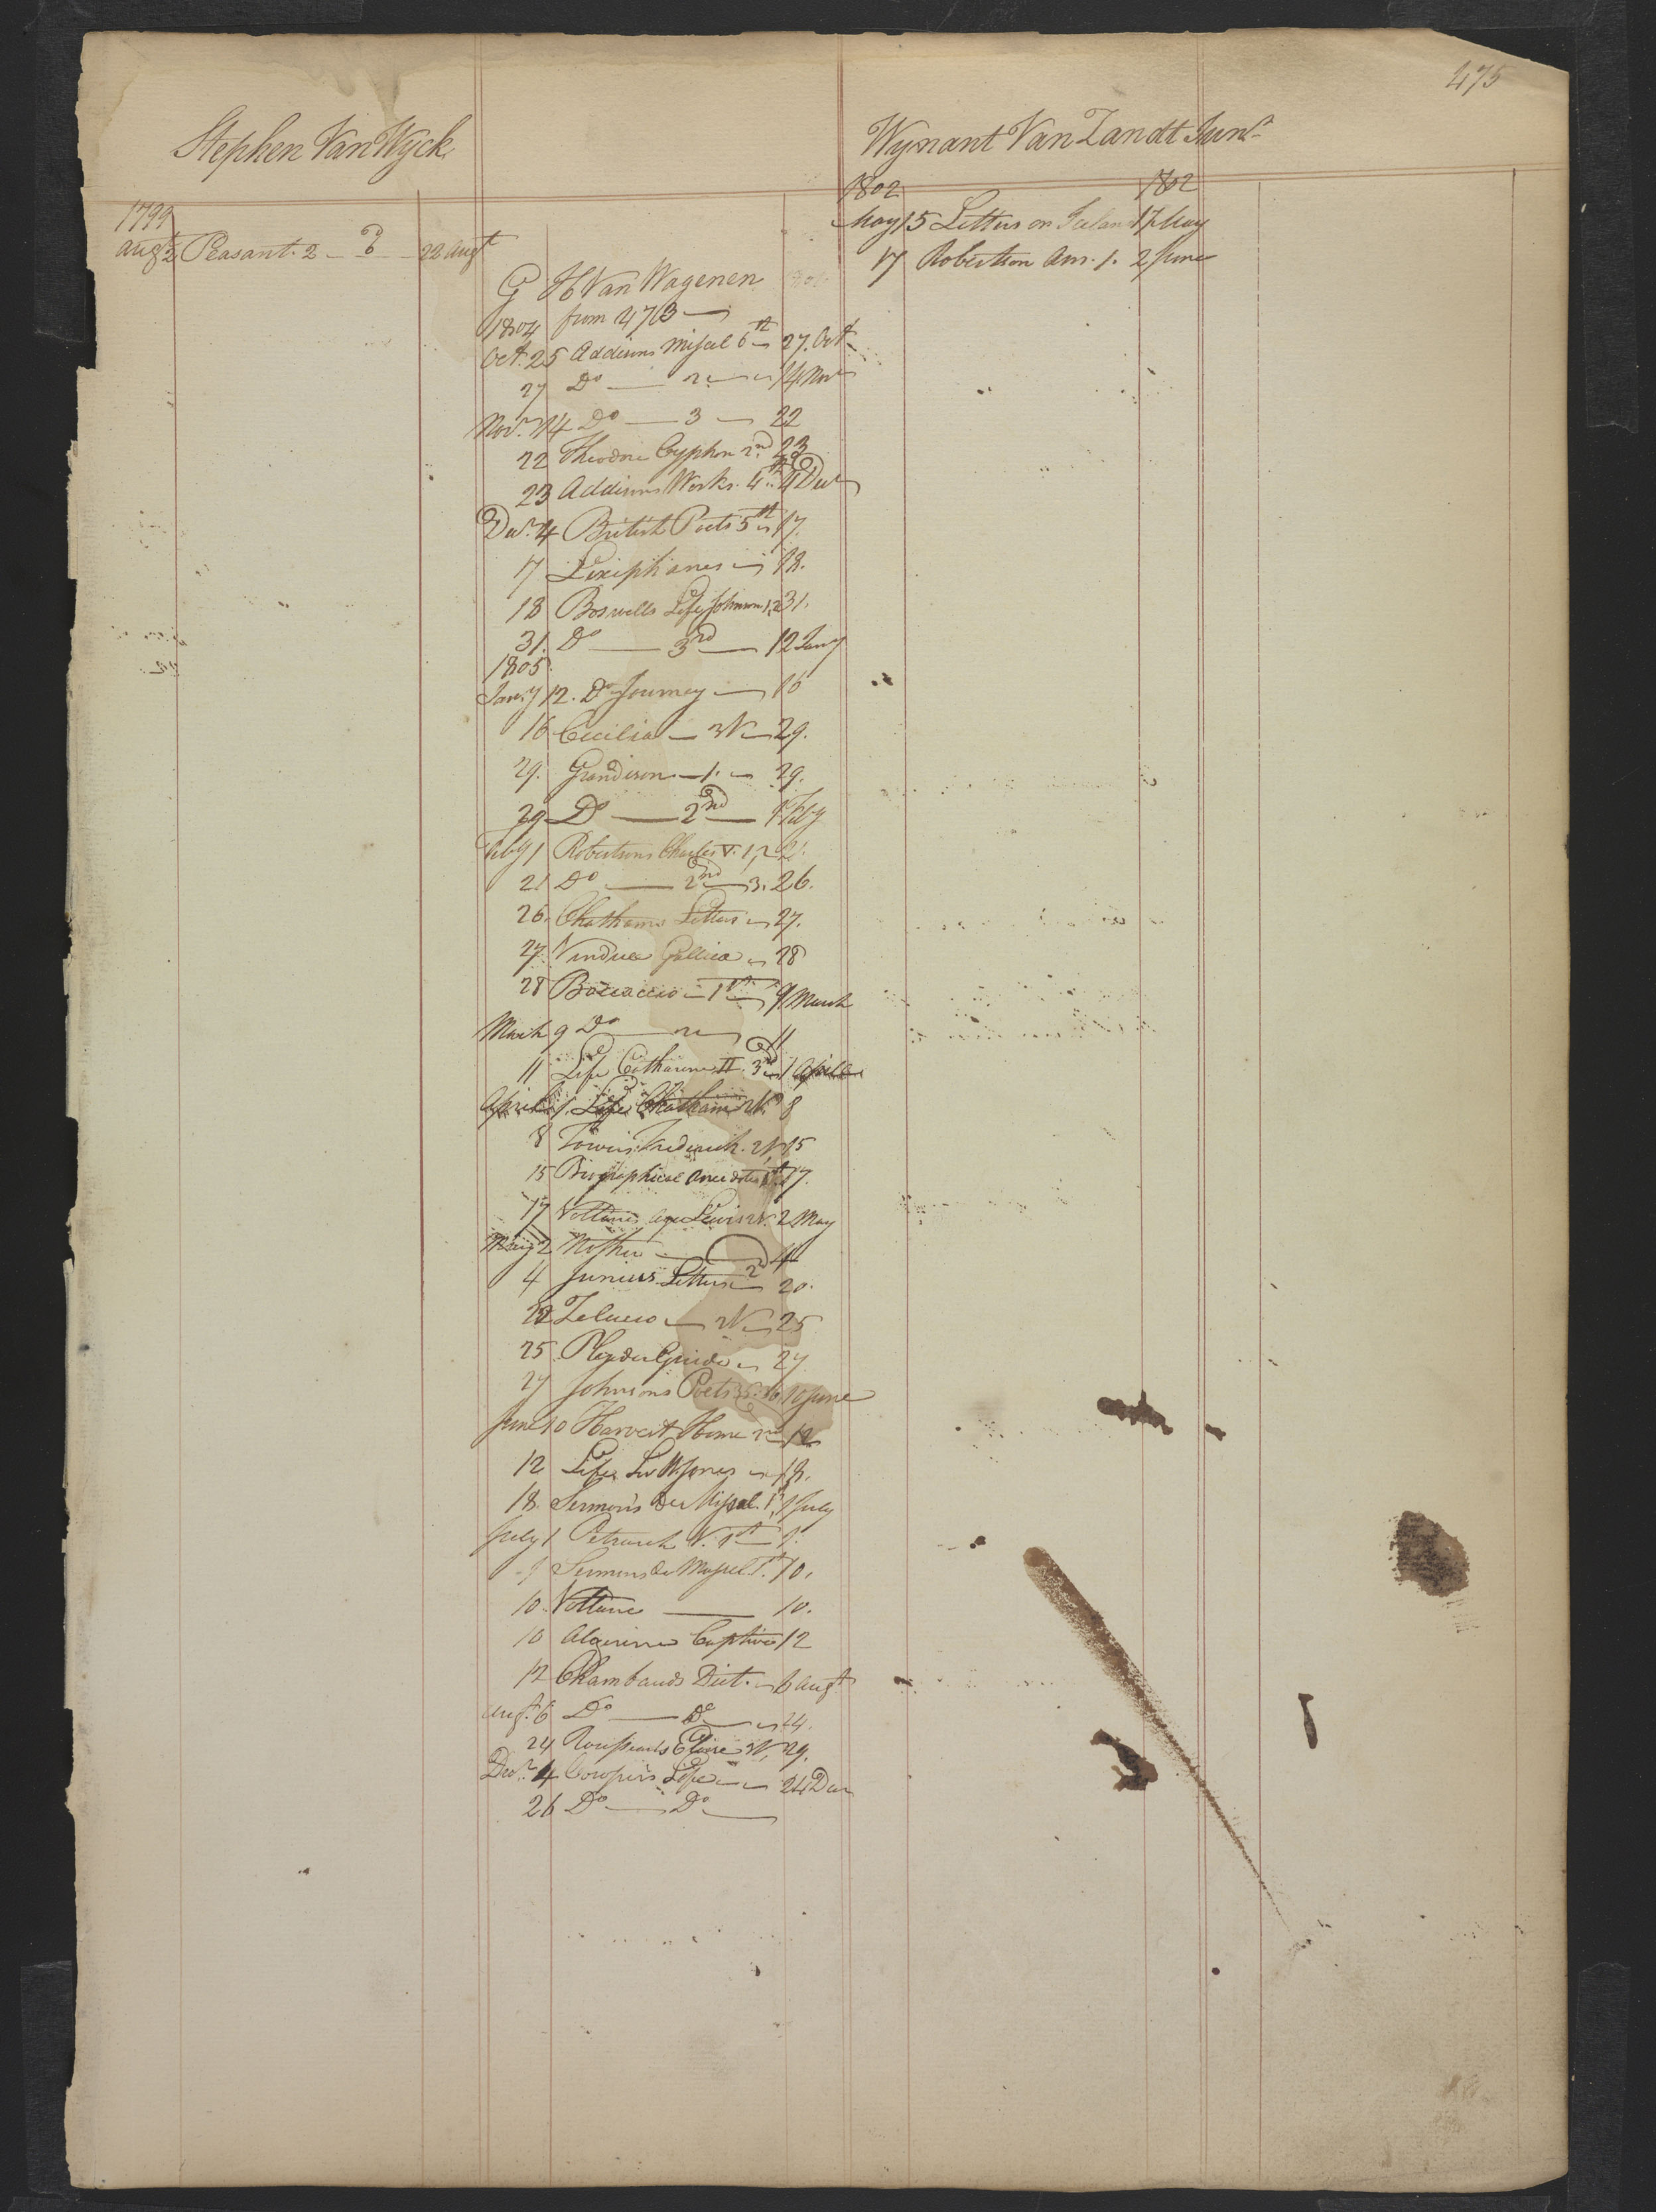 475
Stephen Van Wyck
1799
Augt 2 Peasant. 2 — 22 Augt
G H Van Wagenen
1804 from 473
Oct. 25 Addisons Miscel 6th 27. Oct
27 Do — 2 14 Nov
Nov. 14 Do — 3 — 22
22 Theodore Cyphon 2nd 23
23 Addisons Works. 4th 4 Dec
Decr. 4 British Poets 5th 17.
17 Lexiphanes 18.
18 Boswells Life Johnson 1,2 31.
31. Do — 3rd — 12 Jany
1805
Jany 12. Do Journey — 16
16 Cecilia — 3V — 29.
29. Grandison — 1. — 29.
29 Do — 2nd — 1 Feby
Feby 1 Robertsons Charles V. 1,2 21.
21 Do — 2nd — 3. 26.
26. Chathams Letters 27.
27. Vindicæ Gallicæ 28
28 Boccaccio — 1st 9 March
March 9 Do — 2 — 11
11 Life Catharine II. 3rd 1 April
April 1. Life Chatham 2V. 8
8 Towers Frederick. 2V 15
15 Biographical Anecdotes 1st 17.
17 Voltaires age Lewis 2V. 2 May
May 2 Mother — 4
4 Junius Letters 2d 20.
22 Zelucco — 2V — 25
25 Reader Guido 27
27 Johnsons Poets 10 June
June 10 Harvest Home 2nd 12
12 Life Sir W Jones 18.
18. Sermons &c Miscel. 1st 1 July
July 1 Petrarch V. 1st 9.
9 Sermons &c Miscel 1st. 10.
10. Voltaire — 10.
10 Algerine Captive 12
12 Chambauds Dict. 6 Augt
Augt. 6 Do — Do 24.
24 Rousseaus Eloise 3V, 29.
Decr. 4 Cowpers Life 24 Decr
26 Do — Do
Wynant Van Zandt Junr
1802 1802
May 15 Letters on Iceland 17 May
17 Robertson Am. 1. 2 June